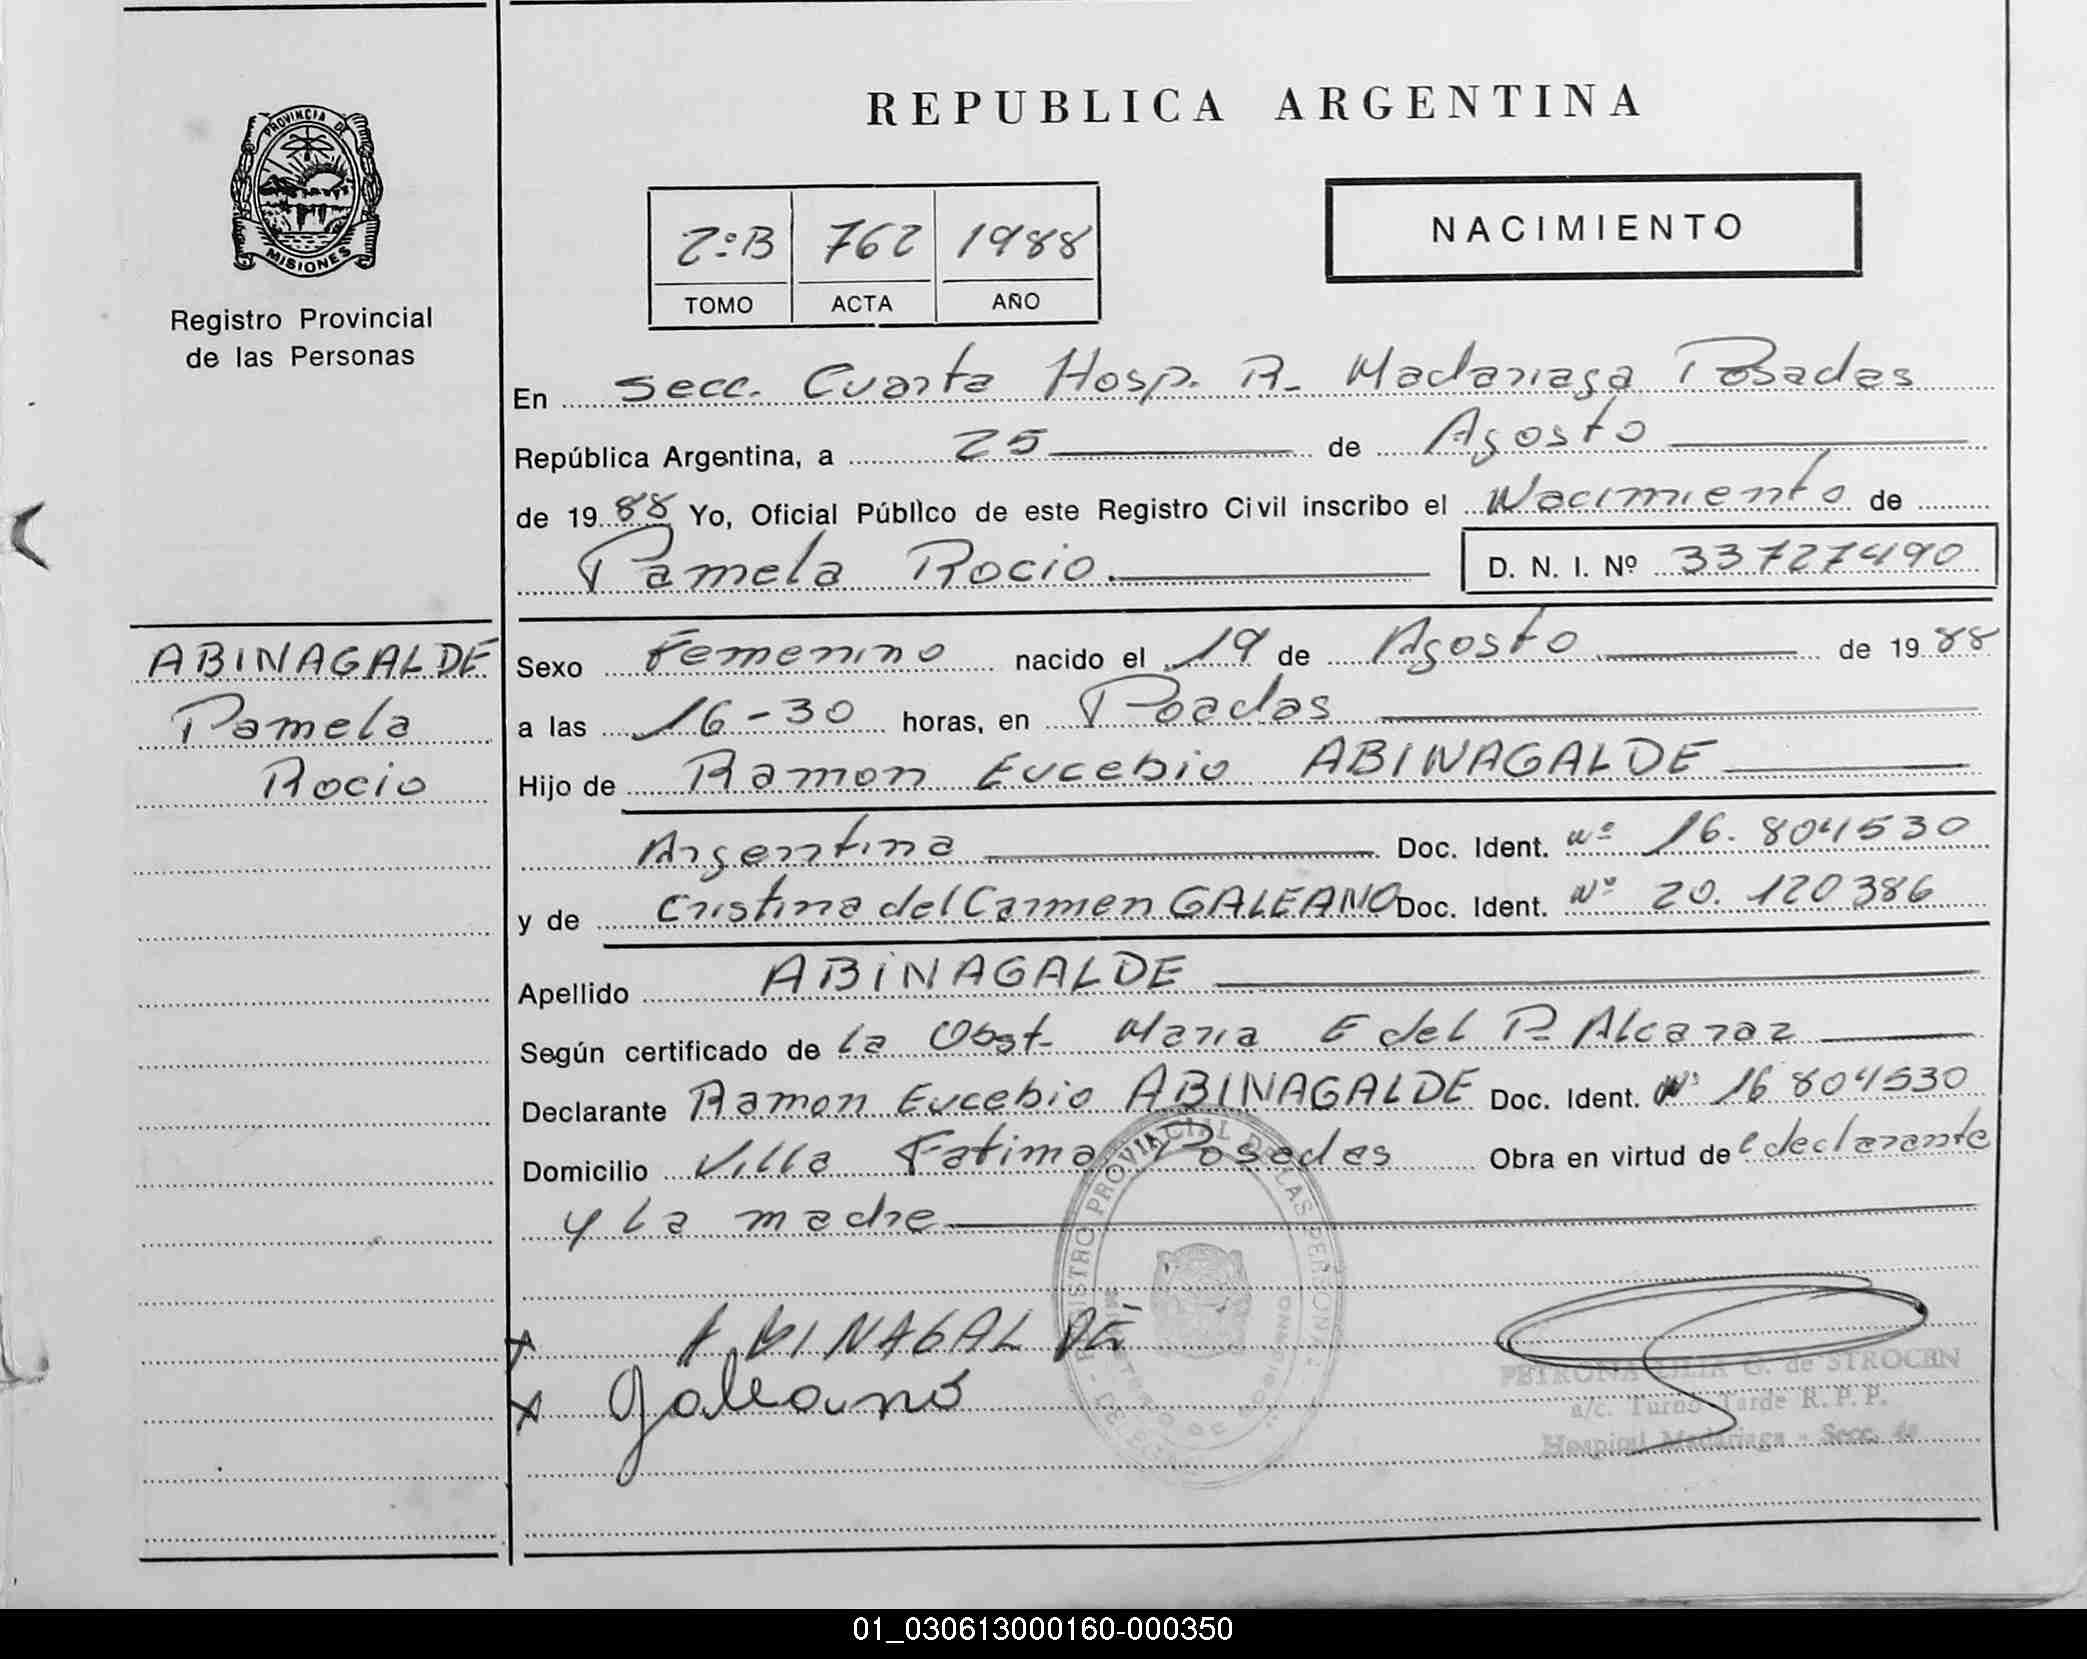 REPUBLICA ARGENTINA
PROVINCIA DE
MISIONES
Registro Provincial
de las Personas
NACIMIENTO
2ºB 762 1988
TOMO ACTA AÑO
En Secc. Cuarta Hosp. R. Madariaga Posadas
República Argentina, a 25 de Agosto
de 1988 Yo, Oficial Público de este Registro Civil inscribo el Nacimiento de
Pamela Rocio D. N. I. Nº 33727490
ABINAGALDE
Pamela
Rocio
Sexo Femenino nacido el 19 de Agosto de 1988
a las 16-30 horas, en Poadas
Hijo de Ramon Eucebio ABINAGALDE
Argentina Doc. Ident. nº 16.804530
y de Cristina del Carmen GALEANO Doc. Ident. Nº 20.120386
Apellido ABINAGALDE
Según certificado de la Obst. Maria E del P. Alcaraz
Declarante Ramon Eucebio ABINAGALDE Doc. Ident. Nº 16804530
Domicilio Villa Fatima Posadas Obra en virtud de l declarante
y la madre
REGISTRO PROVINCIAL DE LAS PERSONAS
ABINAGALDE
Galeano
PETRONA LILIA G. de STROCEN
a/c. Turno Tarde R. P. P.
Hospital Madariaga - Secc. 4a
01_030613000160-000350